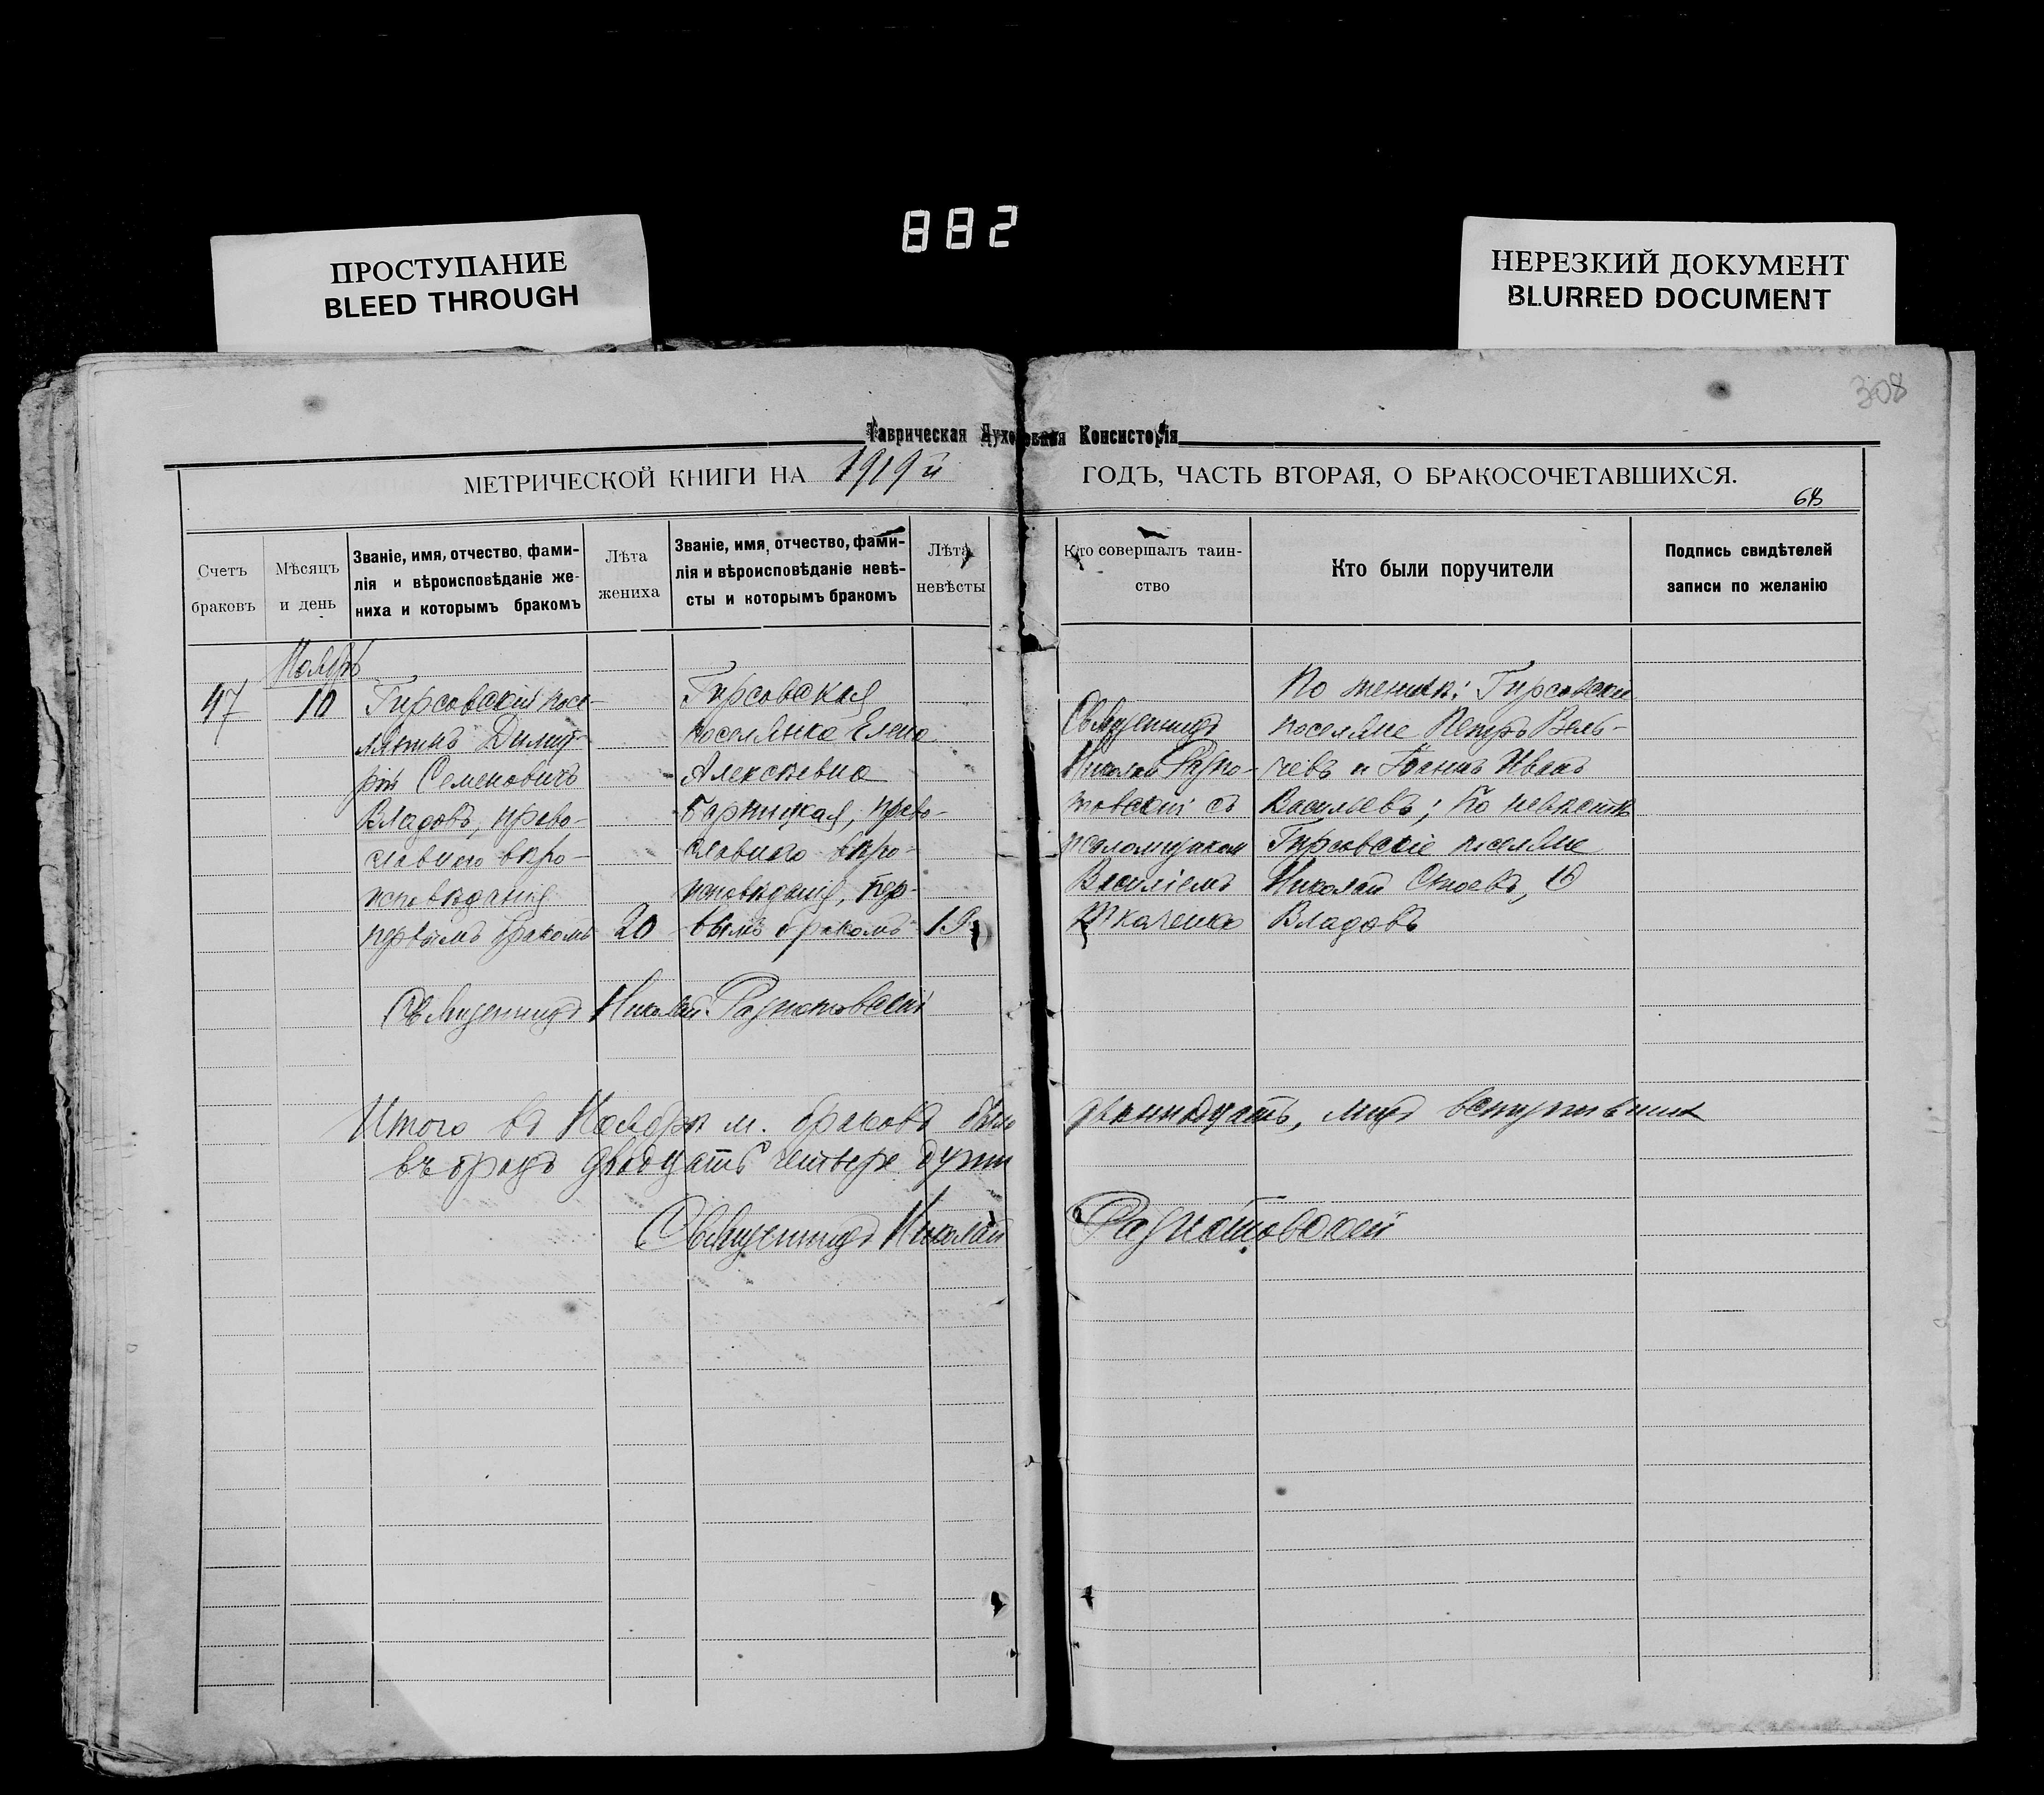 882
ПРОСТУПАНИЕ
BLEED THROUGH
НЕРЕЗКИЙ ДОКУМЕНТ
BLURRED DOCUMENT
308
Таврическая Духовная Консисторія
МЕТРИЧЕСКОЙ КНИГИ НА 1919й ГОДЪ, ЧАСТЬ ВТОРАЯ, О БРАКОСОЧЕТАВШИХСЯ.
Счетъ
браковъ
Мѣсяцъ
и день
Званіе, имя, отчество, фами-
лія и вѣроисповѣданіе же-
ниха и которымъ бракомъ
Лѣта
жениха
Званіе, имя, отчество, фами-
лія и вѣроисповѣданіе невѣ-
сты и которымъ бракомъ
Лѣта
невѣсты
Кто совершалъ таин-
ство
Кто были поручители
Подпись свидѣтелей
записи по желанію
Ноябрь
47
10
Гирсовскій посе-
лянинъ Димит-
рій Семеновичъ
Владовъ, право-
славнаго вѣро-
исповѣданія
первымъ бракомъ
20
Гирсовская
поселянка Елена
Алексѣевна
право-
славнаго вѣро-
исповѣданія, пер-
вымъ бракомъ
19
Священникъ
Николай Разно-
товскій съ
псаломщикомъ
Василіемъ
Ткаченко
По женихѣ: Гирсовскіе
поселяне Петръ Вель-
чевъ и Иванъ
Васильевъ; По невѣстѣ
Гирсовскіе поселяне
Николай
Владовъ
Священникъ Николай Разнотовскій
Итого въ Ноябрѣ м. браковъ было двѣнадцать, лицъ вступившихъ
въ бракъ двадцать четыре души
Священникъ Николай Разнотовскій